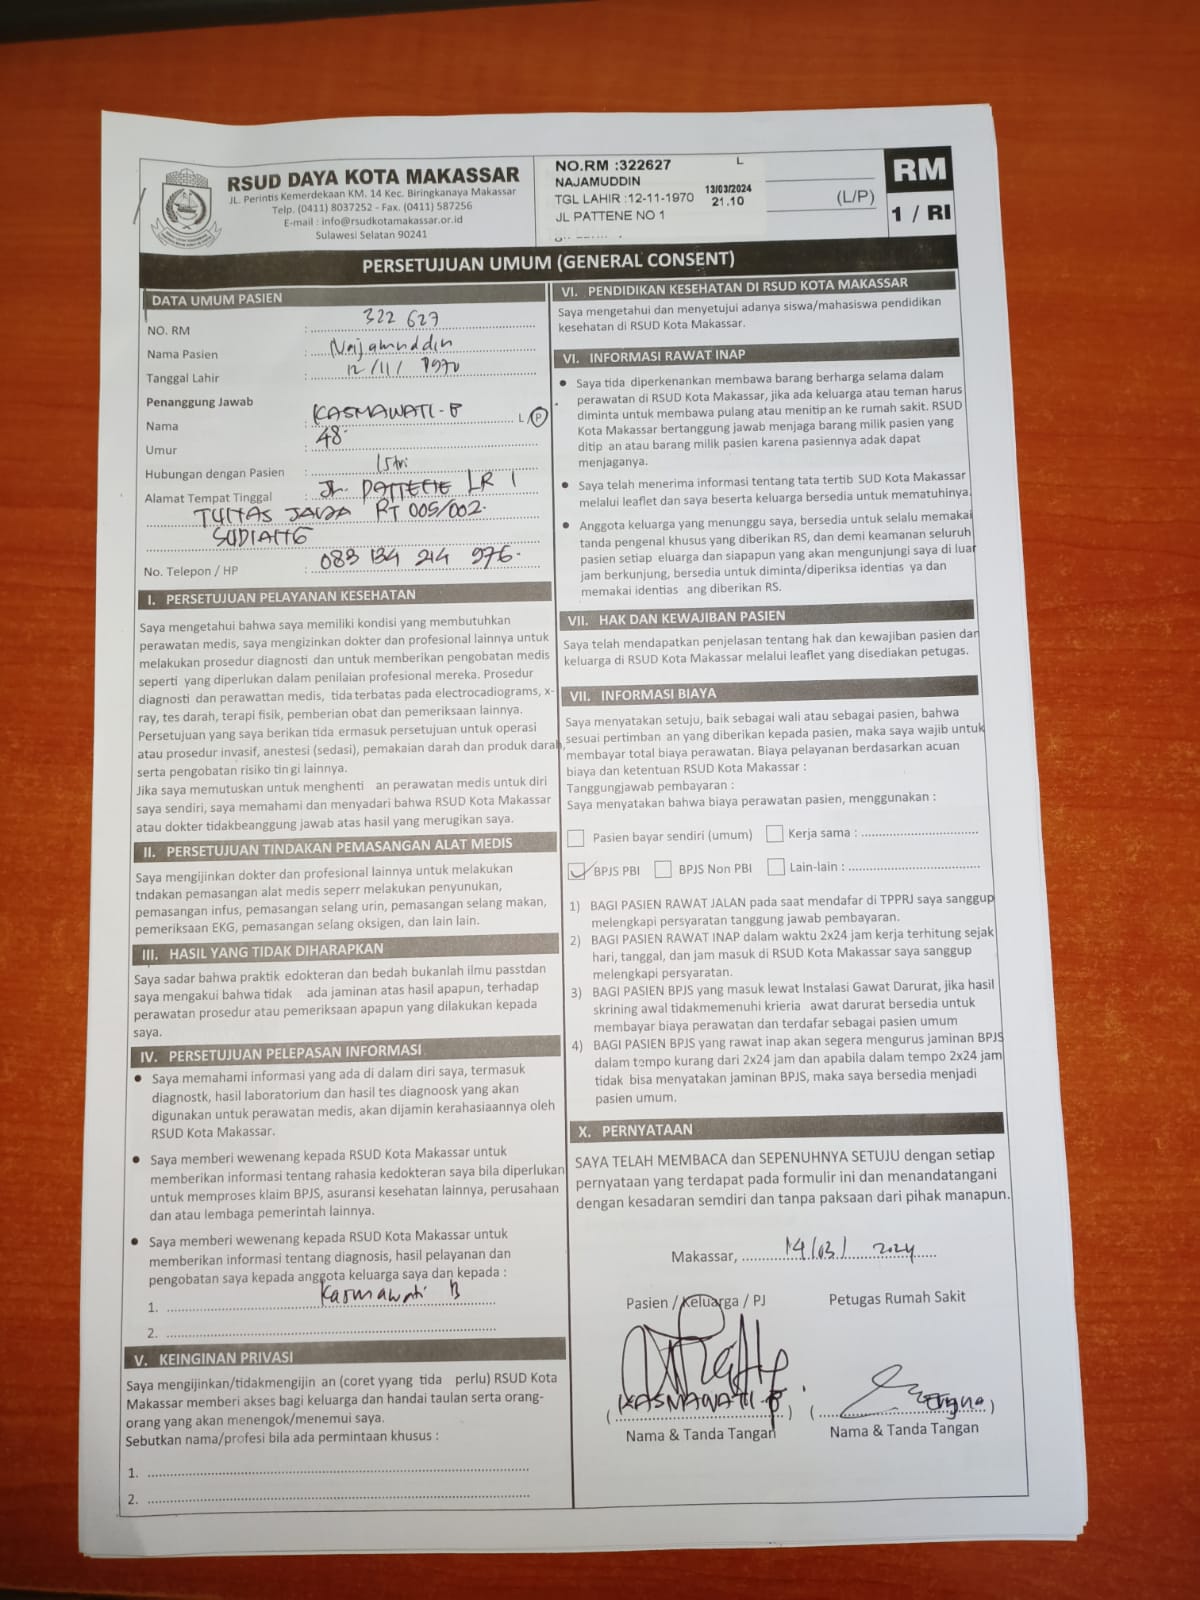 RSUD DAYA KOTA MAKASSAR
JL. Perintis Kemerdekaan KM. 14 Kec. Biringkanaya Makassar
Telp. (0411) 8037252 - Fax. (0411) 587256
E-mail : info@rsudkotamakassar.or.id
Sulawesi Selatan 90241
NO.RM :322627 L
NAJAMUDDIN
TGL LAHIR :12-11-1970
13/03/2024
21.10
JL PATTENE NO 1
(L/P)
RM
1 / RI
PERSETUJUAN UMUM (GENERAL CONSENT)
DATA UMUM PASIEN
NO. RM : 322 627
Nama Pasien : Najamuddin
Tanggal Lahir : 12/11/ 1970
Penanggung Jawab
Nama : KASMAWATI-B L/P
Umur : 48
Hubungan dengan Pasien : Istri
Alamat Tempat Tinggal : JL. PATTENE LR 1
TUNAS JAYA RT 005/002.
SUDIANG
No. Telepon / HP : 083 134 214 976.
I. PERSETUJUAN PELAYANAN KESEHATAN
Saya mengetahui bahwa saya memiliki kondisi yang membutuhkan
perawatan medis, saya mengizinkan dokter dan profesional lainnya untuk
melakukan prosedur diagnosti dan untuk memberikan pengobatan medis
seperti yang diperlukan dalam penilaian profesional mereka. Prosedur
diagnosti dan perawattan medis, tida terbatas pada electrocadiograms, x-
ray, tes darah, terapi fisik, pemberian obat dan pemeriksaan lainnya.
Persetujuan yang saya berikan tida ermasuk persetujuan untuk operasi
atau prosedur invasif, anestesi (sedasi), pemakaian darah dan produk darah,
serta pengobatan risiko tin gi lainnya.
Jika saya memutuskan untuk menghenti an perawatan medis untuk diri
saya sendiri, saya memahami dan menyadari bahwa RSUD Kota Makassar
atau dokter tidakbeanggung jawab atas hasil yang merugikan saya.
II. PERSETUJUAN TINDAKAN PEMASANGAN ALAT MEDIS
Saya mengijinkan dokter dan profesional lainnya untuk melakukan
tndakan pemasangan alat medis seperr melakukan penyunukan,
pemasangan infus, pemasangan selang urin, pemasangan selang makan,
pemeriksaan EKG, pemasangan selang oksigen, dan lain lain.
III. HASIL YANG TIDAK DIHARAPKAN
Saya sadar bahwa praktik edokteran dan bedah bukanlah ilmu passtdan
saya mengakui bahwa tidak ada jaminan atas hasil apapun, terhadap
perawatan prosedur atau pemeriksaan apapun yang dilakukan kepada
saya.
IV. PERSETUJUAN PELEPASAN INFORMASI
• Saya memahami informasi yang ada di dalam diri saya, termasuk
diagnostk, hasil laboratorium dan hasil tes diagnoosk yang akan
digunakan untuk perawatan medis, akan dijamin kerahasiaannya oleh
RSUD Kota Makassar.
• Saya memberi wewenang kepada RSUD Kota Makassar untuk
memberikan informasi tentang rahasia kedokteran saya bila diperlukan
untuk memproses klaim BPJS, asuransi kesehatan lainnya, perusahaan
dan atau lembaga pemerintah lainnya.
• Saya memberi wewenang kepada RSUD Kota Makassar untuk
memberikan informasi tentang diagnosis, hasil pelayanan dan
pengobatan saya kepada anggota keluarga saya dan kepada :
1. Kasmawati B
2.
V. KEINGINAN PRIVASI
Saya mengijinkan/tidakmengijin an (coret yyang tida perlu) RSUD Kota
Makassar memberi akses bagi keluarga dan handai taulan serta orang-
orang yang akan menengok/menemui saya.
Sebutkan nama/profesi bila ada permintaan khusus :
1.
2.
VI. PENDIDIKAN KESEHATAN DI RSUD KOTA MAKASSAR
Saya mengetahui dan menyetujui adanya siswa/mahasiswa pendidikan
kesehatan di RSUD Kota Makassar.
VI. INFORMASI RAWAT INAP
• Saya tida diperkenankan membawa barang berharga selama dalam
perawatan di RSUD Kota Makassar, jika ada keluarga atau teman harus
diminta untuk membawa pulang atau menitip an ke rumah sakit. RSUD
Kota Makassar bertanggung jawab menjaga barang milik pasien yang
ditip an atau barang milik pasien karena pasiennya adak dapat
menjaganya.
• Saya telah menerima informasi tentang tata tertib SUD Kota Makassar
melalui leaflet dan saya beserta keluarga bersedia untuk mematuhinya.
• Anggota keluarga yang menunggu saya, bersedia untuk selalu memakai
tanda pengenal khusus yang diberikan RS, dan demi keamanan seluruh
pasien setiap eluarga dan siapapun yang akan mengunjungi saya di luar
jam berkunjung, bersedia untuk diminta/diperiksa identias ya dan
memakai identias ang diberikan RS.
VII. HAK DAN KEWAJIBAN PASIEN
Saya telah mendapatkan penjelasan tentang hak dan kewajiban pasien dan
keluarga di RSUD Kota Makassar melalui leaflet yang disediakan petugas.
VII. INFORMASI BIAYA
Saya menyatakan setuju, baik sebagai wali atau sebagai pasien, bahwa
sesuai pertimban an yang diberikan kepada pasien, maka saya wajib untuk
membayar total biaya perawatan. Biaya pelayanan berdasarkan acuan
biaya dan ketentuan RSUD Kota Makassar :
Tanggungjawab pembayaran :
Saya menyatakan bahwa biaya perawatan pasien, menggunakan :
Pasien bayar sendiri (umum) Kerja sama :
BPJS PBI BPJS Non PBI Lain-lain :
1) BAGI PASIEN RAWAT JALAN pada saat mendafar di TPPRJ saya sanggup
melengkapi persyaratan tanggung jawab pembayaran.
2) BAGI PASIEN RAWAT INAP dalam waktu 2x24 jam kerja terhitung sejak
hari, tanggal, dan jam masuk di RSUD Kota Makassar saya sanggup
melengkapi persyaratan.
3) BAGI PASIEN BPJS yang masuk lewat Instalasi Gawat Darurat, jika hasil
skrining awal tidakmemenuhi krieria awat darurat bersedia untuk
membayar biaya perawatan dan terdafar sebagai pasien umum
4) BAGI PASIEN BPJS yang rawat inap akan segera mengurus jaminan BPJS
dalam tempo kurang dari 2x24 jam dan apabila dalam tempo 2x24 jam
tidak bisa menyatakan jaminan BPJS, maka saya bersedia menjadi
pasien umum.
X. PERNYATAAN
SAYA TELAH MEMBACA dan SEPENUHNYA SETUJU dengan setiap
pernyataan yang terdapat pada formulir ini dan menandatangani
dengan kesadaran semdiri dan tanpa paksaan dari pihak manapun.
Makassar, 14/03/ 2024
Pasien / Keluarga / PJ Petugas Rumah Sakit
(KASMAWATI-B) ( )
Nama & Tanda Tangan Nama & Tanda Tangan